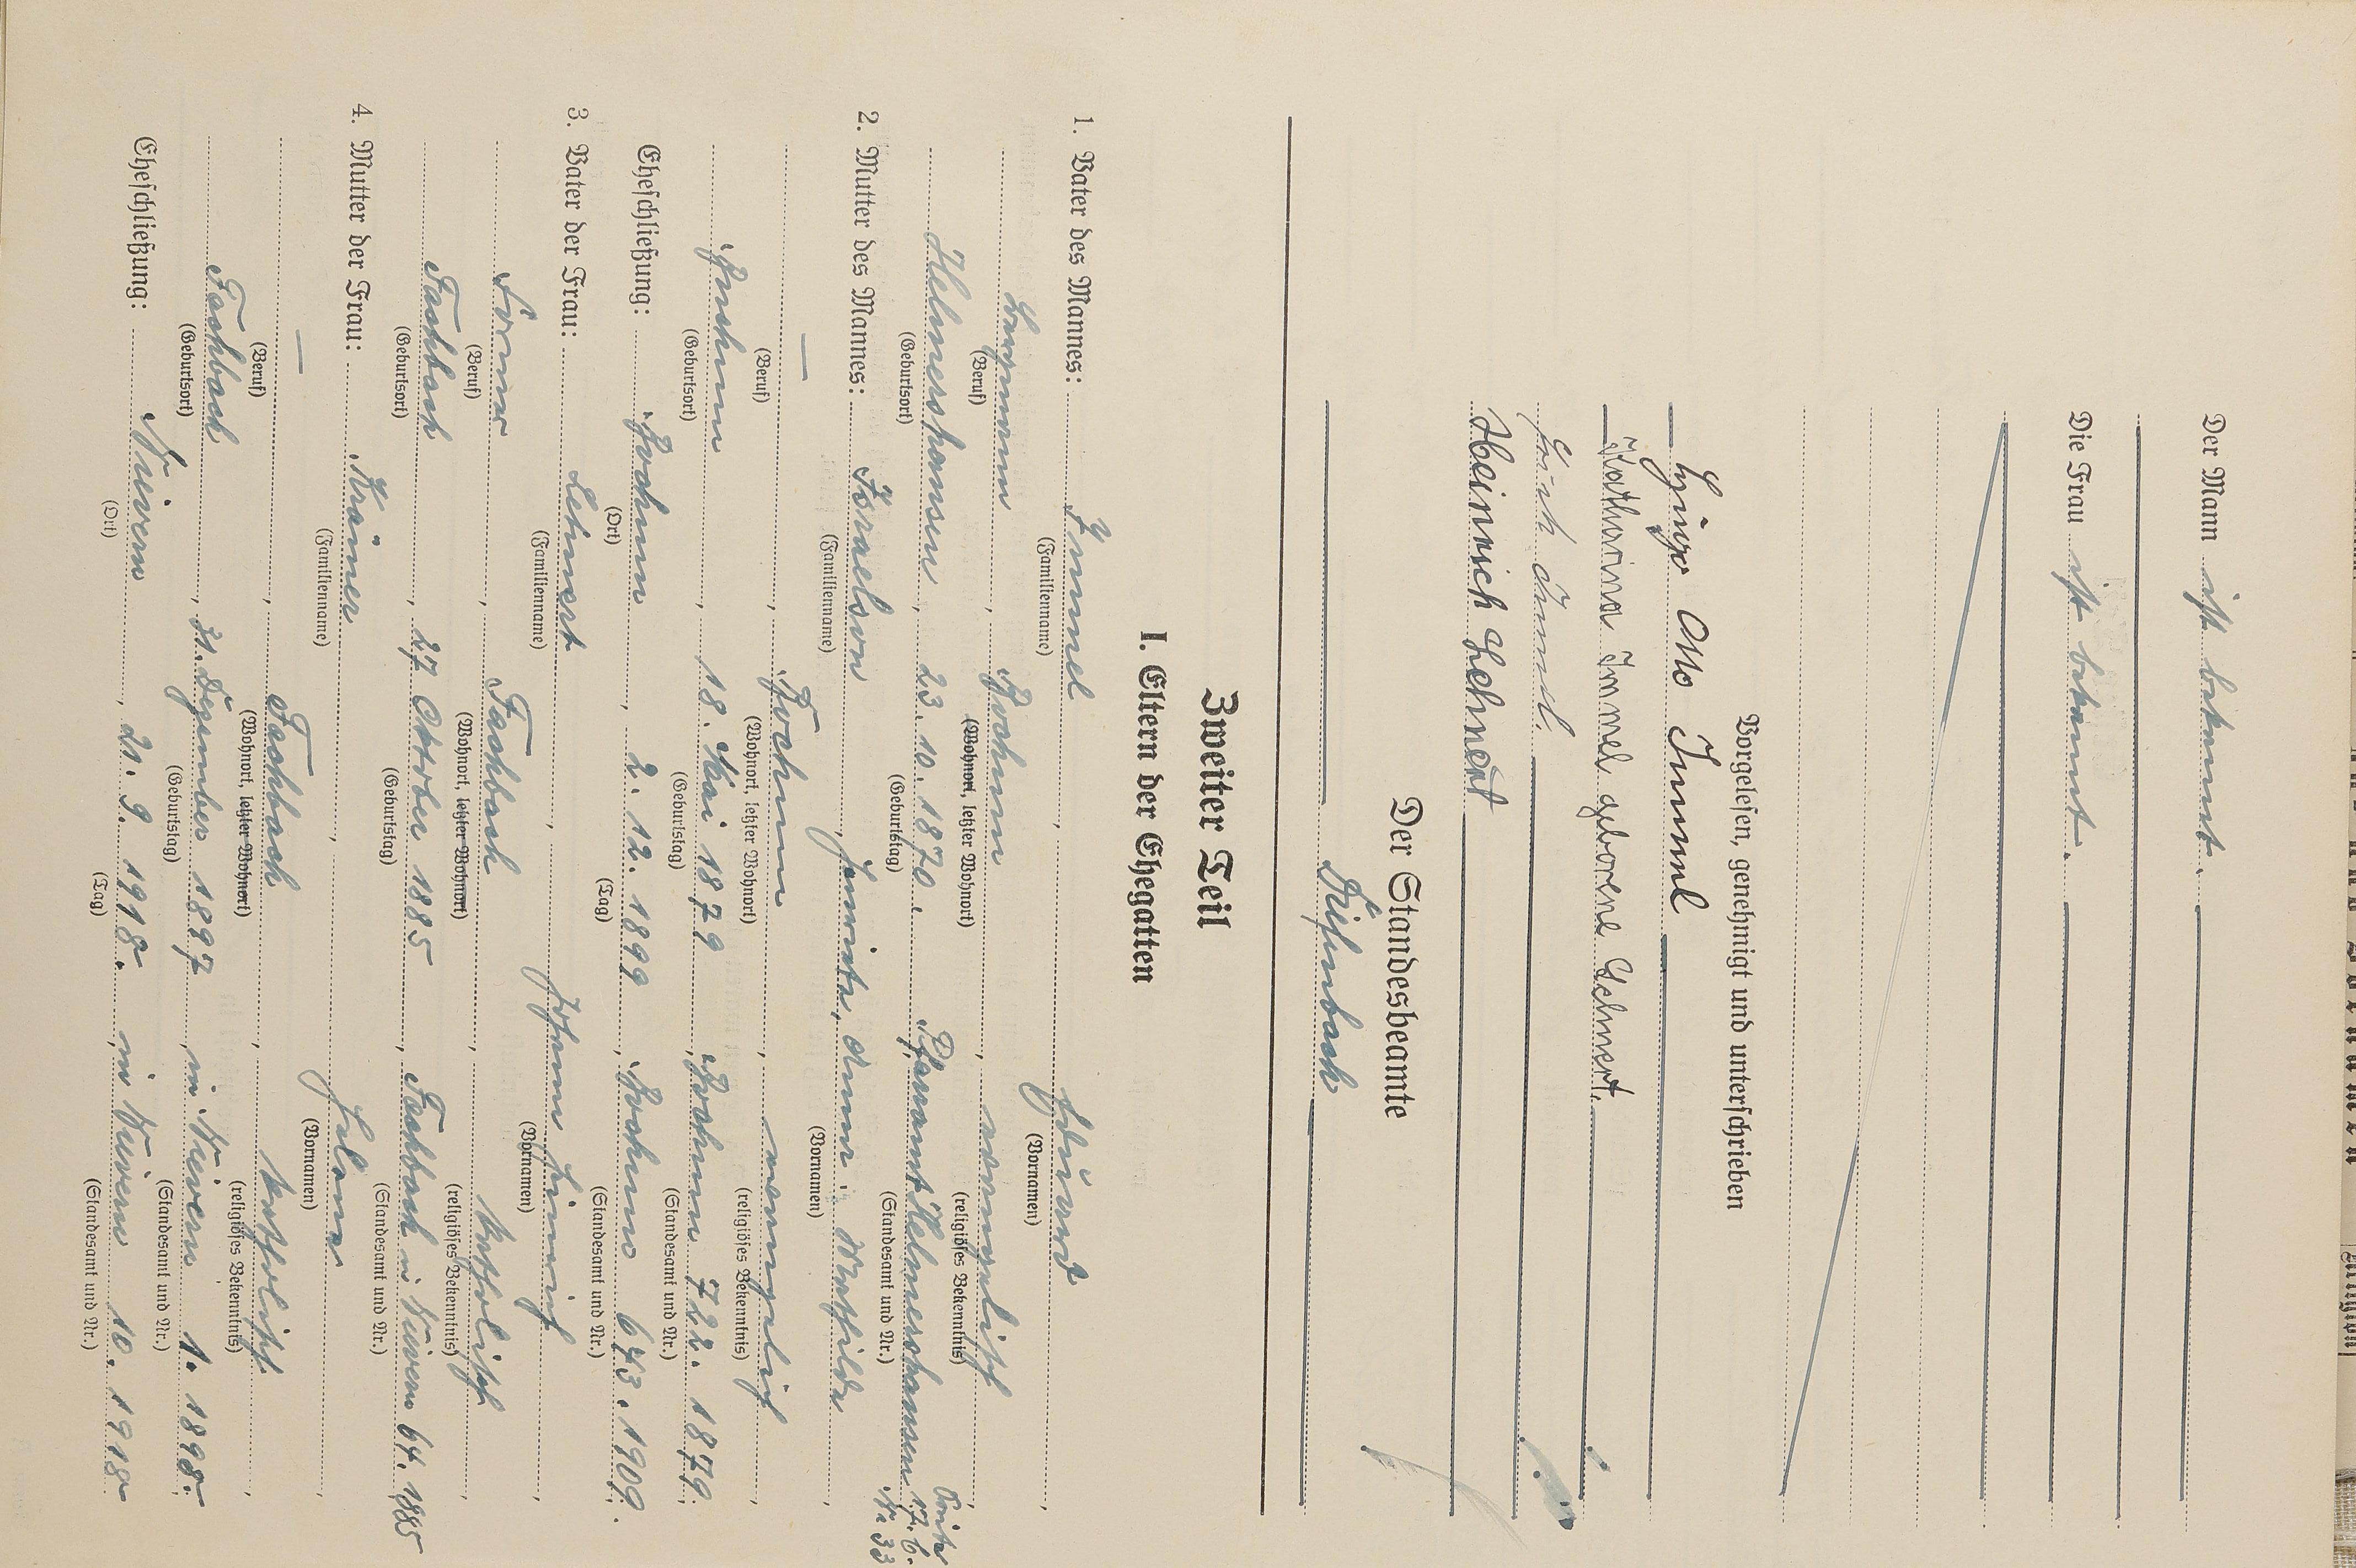 Der Mann ist bekannt.
Die Frau ist bekannt.
Vorgelesen, genehmigt und unterschrieben
Hugo Otto Immel
Katharina Immel geborene Lehnert.
Immel.
Heinrich Lehnert
Der Standesbeamte
Zweiter Teil
I. Eltern der Ehegatten
1. Vater des Mannes: Immel, Eduard,
(Familienname) (Vornamen)
Bergmann, Bochum, evangelisch,
(Beruf) (Wohnort, letzter Wohnort) (religiöses Bekenntnis)
Helmershausen, 23. 10. 1870. Pfarramt Helmershausen
(Geburtsort) (Geburtstag) (Standesamt und Nr.)
2. Mutter des Mannes: Israelson, Anna
(Familienname) (Vornamen)
—, Bochum, evangelisch,
(Beruf) (Wohnort, letzter Wohnort) (religiöses Bekenntnis)
Bochum, 18. Mai 1879, Bochum 722. 1879.
(Geburtsort) (Geburtstag) (Standesamt und Nr.)
Eheschließung: Bochum, 2. 12. 1899, Bochum 643. 1909.
(Ort) (Tag) (Standesamt und Nr.)
3. Vater der Frau: Lehnert, Johann Heinrich,
(Familienname) (Vornamen)
Former, Fachbach, katholisch,
(Beruf) (Wohnort, letzter Wohnort) (religiöses Bekenntnis)
Fachbach, 27 Oktober 1885, Fachbach in Nievern 64. 1885
(Geburtsort) (Geburtstag) (Standesamt und Nr.)
4. Mutter der Frau: Krämer,
(Familienname) (Vornamen)
—, Fachbach, katholisch,
(Beruf) (Wohnort, letzter Wohnort) (religiöses Bekenntnis)
Fachbach, 31. Dezember 1897, in Nievern 1. 1898.
(Geburtsort) (Geburtstag) (Standesamt und Nr.)
Eheschließung: Nievern, 21. 9. 1918., in Nievern 10. 1918
(Ort) (Tag) (Standesamt und Nr.)